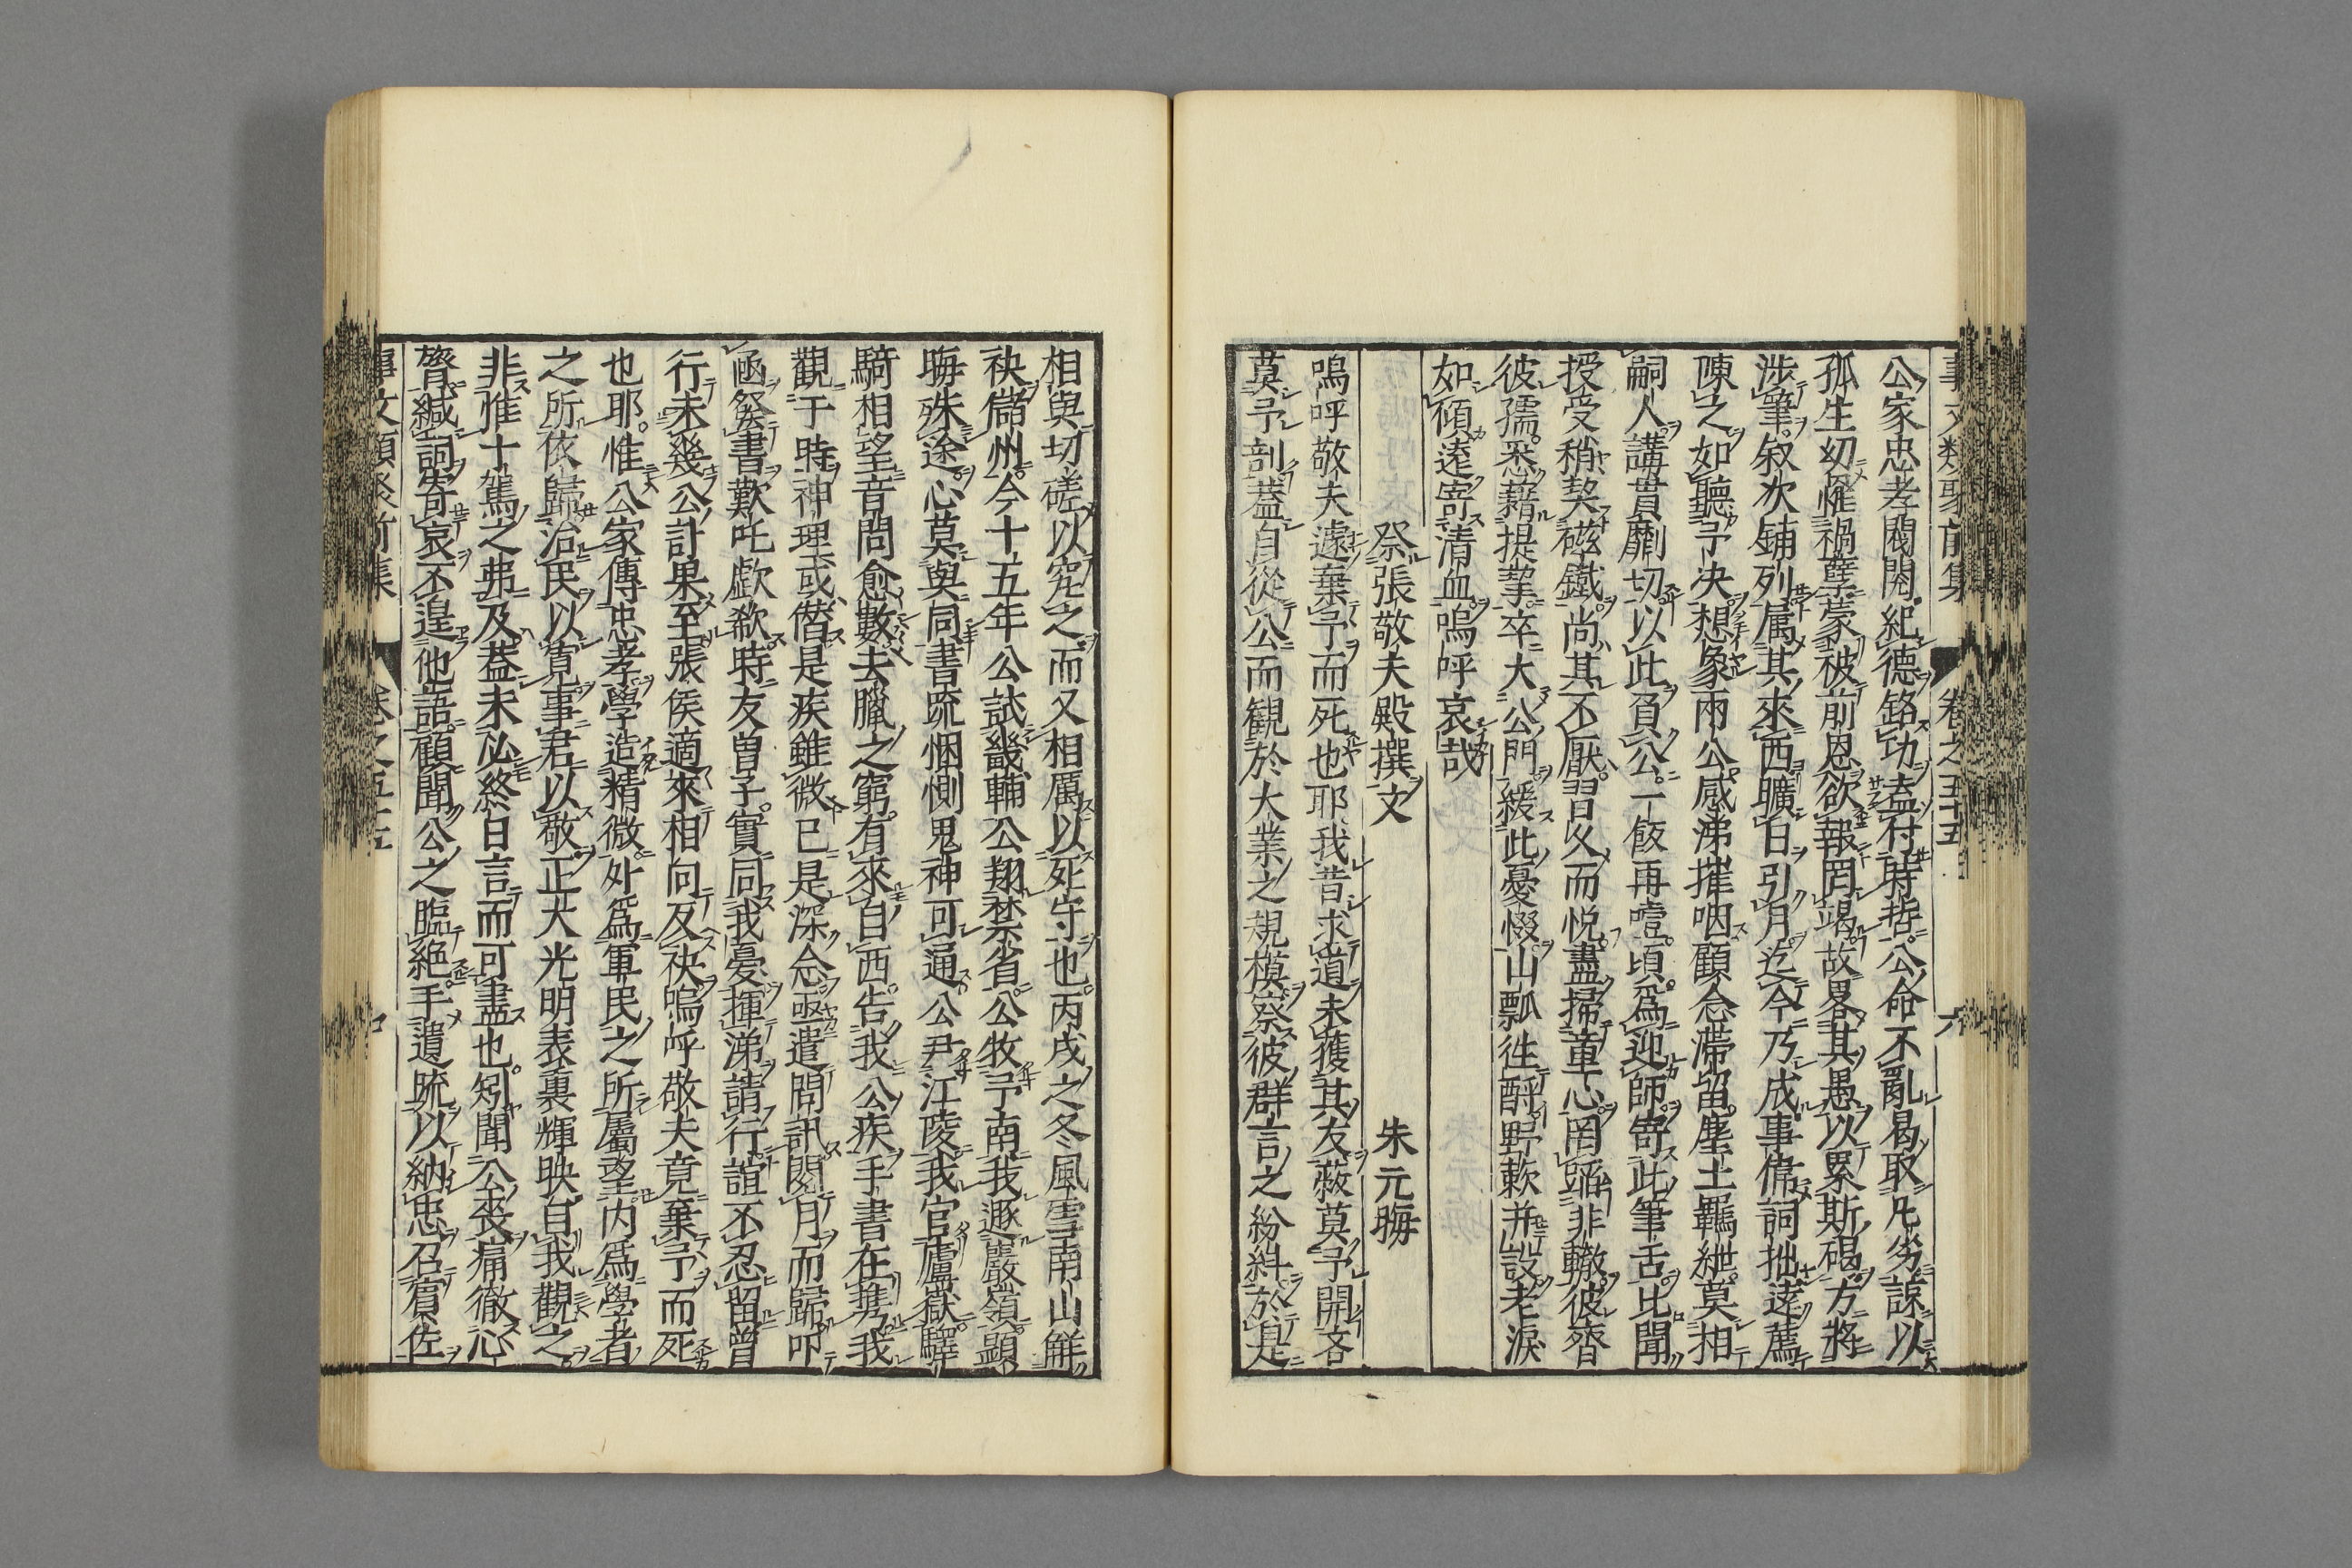 事文類聚前集 卷之五十五 六
公家忠孝閥閱紀德銘功盍付時哲公命不亂曷取凡劣諒以
孤生幼罹禍孽蒙被前恩欲報罔竭故畧其愚以累斯碣方將
涉筆叙次鋪列属其來西曠日引月迄今乃成事偉詞拙逹薦
陳之如聽予决想象兩公感涕摧咽顧念滯留塵土羈紲莫相
嗣人講貫劘切以此負公一飯再噎頃爲迎師寄此筆舌比聞
授受稍契磁鐵尚其不厭習久而悦盡掃童心罔蹈非轍彼齊
彼孺悉藉提挈卒大公門緩此憂惙山瓢往酹野蔌并設老淚
如傾遠寄清血嗚呼哀哉
祭張敬夫殿撰文 朱元晦
嗚呼敬夫遽棄予而死也耶我昔求道未獲其友蔽莫予開吝
莫予剖葢自從公而観於大業之規模察彼群言之紛糾於是
相與切磋以究之而又相厲以死守也丙戌之冬風雪南山觧
袂儲州今十五年公試畿輔公翔禁省公牧于南我遯巖嶺顯
晦殊途心莫與同書䟽悃惻鬼神可通公尹江陵我官廬嶽驛
騎相望音問愈數去臘之窮有來自西告我公疾手書在携我
觀于時神理或僣是疾雖微已是深念亟遣問訊閱月而歸叩
函發書歎吒歔欷時友曽子實同我憂揮涕請行誼不忍留曽
行未幾公訃果至張侯適來相向反袂嗚呼敬夫竟棄予而死
也耶惟公家傳忠孝學造精微外爲軍民之所屬望内爲學者
之所依歸治民以寛事君以敬正大光明表裏輝映自我觀之
非惟十駑之弗及葢未必終日言而可盡也矧聞公喪痛徹心
膂緘詞寄哀不遑他語顧聞公之臨絶手遺䟽以納忠召賔佐